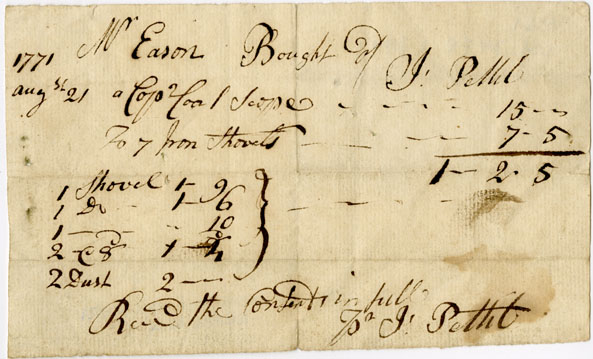 Mr Eason Bought of
J: Pettit
1771
augst 21 a Copr Coal Scope — — — 15 —
To 7 Iron Shovels — — — 7 - 5
1 — 2 - 5
1 Shovel 1 - 9
1 Do - 1 - 6
1 — " 10
2 1 - 4
2 Dust 2 —
Recd the Contents in full
Pr J: Pettit